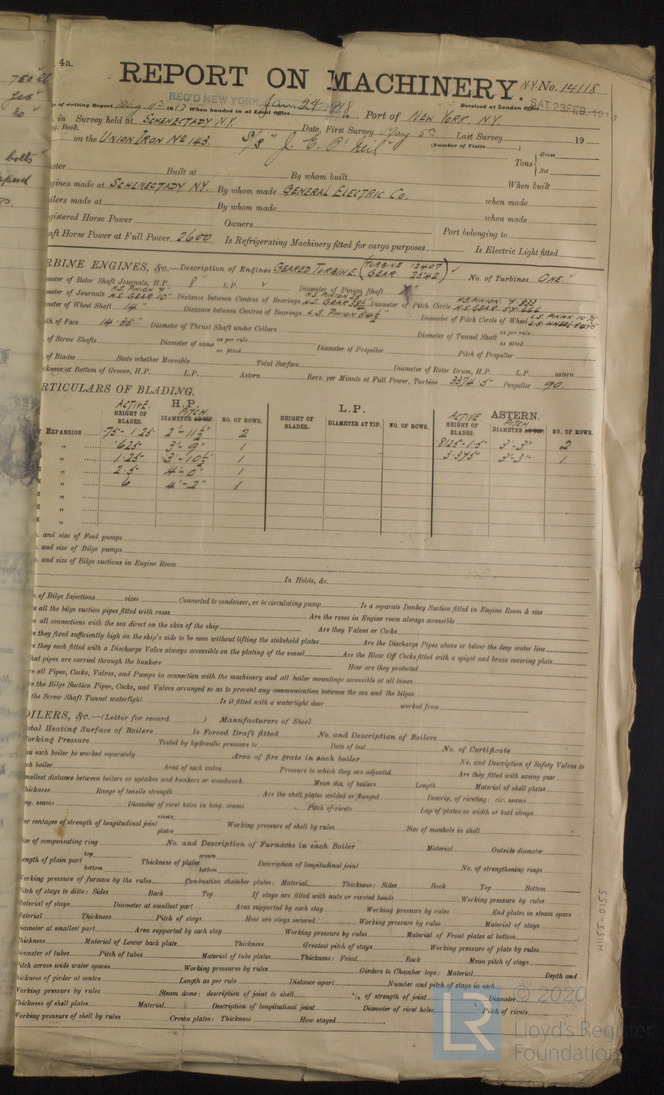 4a.
REPORT ON MACHINERY. N.Y. No. 14118
of writing Report 19 17 When handed in at Local Office REC'D NEW YORK Jan. 29 1918 Received at London Office SAT. 23 FEB. 191
in Survey held at SCHENECTADY N.Y. Port of NEW YORK N.Y.
Book. Date, First Survey May 5th Last Survey 19
(Number of Visits )
on the UNION IRON No 143. S/S J. E. O'Neil
Tons { Gross
Net
Built at By whom built When built
gines made at SCHENECTADY NY. By whom made GENERAL ELECTRIC Co. when made
ilers made at By whom made when made
gistered Horse Power Owners Port belonging to
aft Horse Power at Full Power 2600 Is Refrigerating Machinery fitted for cargo purposes Is Electric Light fitted
RBINE ENGINES, &c.—Description of Engines GEARED TURBINE (TURBINE 12407 GEAR 2542) No. of Turbines ONE.
meter of Rotor Shaft Journals, H.P. 8" L.P. Diameter of Pinion Shaft
meter of Journals H.S. PINION 7" H.S. GEAR 10" Distance between Centres of Bearings Diameter of Pitch Circle H.S. PINION
meter of Wheel Shaft 14" Distance between Centres of Bearings L.S. PINION 54½" Diameter of Pitch Circle of Wheel
th of Face 14.35" Diameter of Thrust Shaft under Collars Diameter of Tunnel Shaft as per rule
as fitted
of Screw Shafts Diameter of same as per rule
as fitted Diameter of Propeller Pitch of Propeller
of Blades State whether Moveable Total Surface Diameter of Rotor Drum, H.P. L.P. astern
ckness at Bottom of Groove, H.P. L.P. Astern Revs. per Minute at Full Power, Turbine 3374.5 Propeller 90
RTICULARS OF BLADING.
H.P. L.P. ASTERN.
ACTIVE HEIGHT OF BLADES. PITCH DIAMETER AT TIP. NO. OF ROWS. HEIGHT OF BLADES. DIAMETER AT TIP. NO. OF ROWS. ACTIVE HEIGHT OF BLADES. PITCH DIAMETER AT TIP. NO. OF ROWS.
EXPANSION .75 - 1.25 2'-11½" 2 .8125-1.5" 3'-3" 2
" .625 3'-9" 1 3.375" 3'-3" 1
" 1.25 3'-10½" 1
" 2.5 4'-0" 1
" 6 4'-2" 1
"
"
"
and size of Feed pumps
and size of Bilge pumps
and size of Bilge suctions in Engine Room
In Holds, &c.
of Bilge Injections sizes Connected to condenser, or to circulating pump Is a separate Donkey Suction fitted in Engine Room & size
all the bilge suction pipes fitted with roses Are the roses in Engine room always accessible
all connections with the sea direct on the skin of the ship Are they Valves or Cocks
they fixed sufficiently high on the ship's side to be seen without lifting the stokehold plates Are the Discharge Pipes above or below the deep water line
they each fitted with a Discharge Valve always accessible on the plating of the vessel Are the Blow Off Cocks fitted with a spigot and brass covering plate
hat pipes are carried through the bunkers How are they protected
all Pipes, Cocks, Valves, and Pumps in connection with the machinery and all boiler mountings accessible at all times
the Bilge Suction Pipes, Cocks, and Valves arranged so as to prevent any communication between the sea and the bilges
the Screw Shaft Tunnel watertight Is it fitted with a watertight door worked from
OILERS, &c.—(Letter for record ) Manufacturers of Steel
otal Heating Surface of Boilers Is Forced Draft fitted No. and Description of Boilers
Working Pressure Tested by hydraulic pressure to Date of test No. of Certificate
an each boiler be worked separately Area of fire grate in each boiler No. and Description of Safety Valves to
ach boiler Area of each valve Pressure to which they are adjusted Are they fitted with easing gear
mallest distance between boilers or uptakes and bunkers or woodwork Mean dia. of boilers Length Material of shell plates
hickness Range of tensile strength Are the shell plates welded or flanged Descrip. of riveting: cir. seams
ng. seams Diameter of rivet holes in long. seams Pitch of rivets Lap of plates or width of butt straps
er centages of strength of longitudinal joint rivets
plates Working pressure of shell by rules Size of manhole in shell
ze of compensating ring No. and Description of Furnaces in each Boiler Material Outside diameter
ength of plain part top
bottom Thickness of plates crown
bottom Description of longitudinal joint No. of strengthening rings
Working pressure of furnace by the rules Combustion chamber plates: Material Thickness: Sides Back Top Bottom
Pitch of stays to ditto: Sides Back Top If stays are fitted with nuts or riveted heads Working pressure by rules
Material of stays Diameter at smallest part Area supported by each stay Working pressure by rules End plates in steam space
Material Thickness Pitch of stays How are stays secured Working pressure by rules Material of stays
Diameter at smallest part Area supported by each stay Working pressure by rules Material of Front plates at bottom
hickness Material of Lower back plate Thickness Greatest pitch of stays Working pressure of plate by rules
Diameter of tubes Pitch of tubes Material of tube plates Thickness: Front Back Mean pitch of stays
Pitch across wide water spaces Working pressures by rules Girders to Chamber tops: Material Depth and
hickness of girder at centre Length as per rule Distance apart Number and pitch of stays in each
Working pressure by rules Steam dome: description of joint to shell % of strength of joint Diameter
Thickness of shell plates Material Description of longitudinal joint Diameter of rivet holes Pitch of rivets
Working pressure of shell by rules Crown plates: Thickness How stayed
W1155-0155
© 2020
Lloyd's Register
Foundation
LR